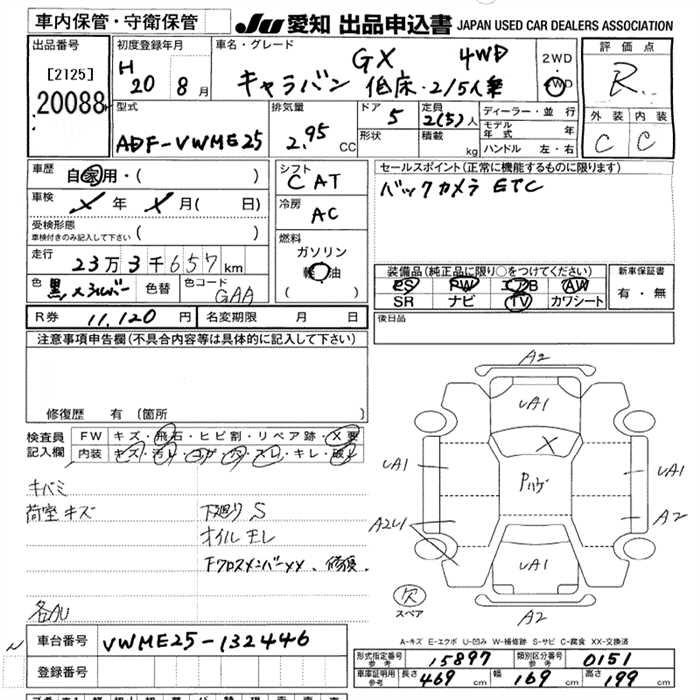 車内保管・守衛保管
JU 愛知 出品申込書 JAPAN USED CAR DEALERS ASSOCIATION
出品番号
[2125]
20088
初度登録年月
H 20 8月
車名・グレード
GX 4WD
キャラバン 低床・2/5人乗
2WD
・
4WD
評価点
R
外装 内装
C C
型式
ADF-VWME25
排気量
2.95 CC
ドア 5
形状
定員
2(5)人
積載
kg
ディーラー・並行
モデル年式 年
ハンドル 左・右
車歴
自家用・( )
車検
X年 X月( 日)
受検形態
車検付きのみ記入して下さい ( )
走行
23万3千657km
色 黒メシルバー 色替
色コード GAA
シフト
CAT
冷房
AC
燃料
ガソリン
軽油
( )
セールスポイント(正常に機能するものに限ります)
バックカメラ ETC
装備品(純正品に限り○をつけてください)
PS PW エアB AW
SR ナビ TV カワシート
新車保証書
有・無
R券 11,120円
名変期限 月 日
後日品
注意事項申告欄(不具合内容等は具体的に記入して下さい)
修復歴 有(箇所 )
検査員
記入欄
FW キズ・飛石・ヒビ割・リペア跡・X要
内装 キズ・汚レ・コゲ・穴・スレ・キレ・破レ
キバミ
荷室キズ
下廻りS
オイルモレ
FクロスメンバーXX、修復。
各AU
A2
UA1
X
UA1
Pハゲ
UA1
A2U1
A2
UA1
A2
欠
スペア
A-キズ E-エクボ U-凹み W-補修跡 S-サビ C-腐食 XX-交換済
車台番号 VWME25-132446
登録番号
形式指定番号
参考
15897
類別区分番号
参考
0151
車庫証明用
参考
長さ 469 cm
幅 169 cm
高さ 199 cm